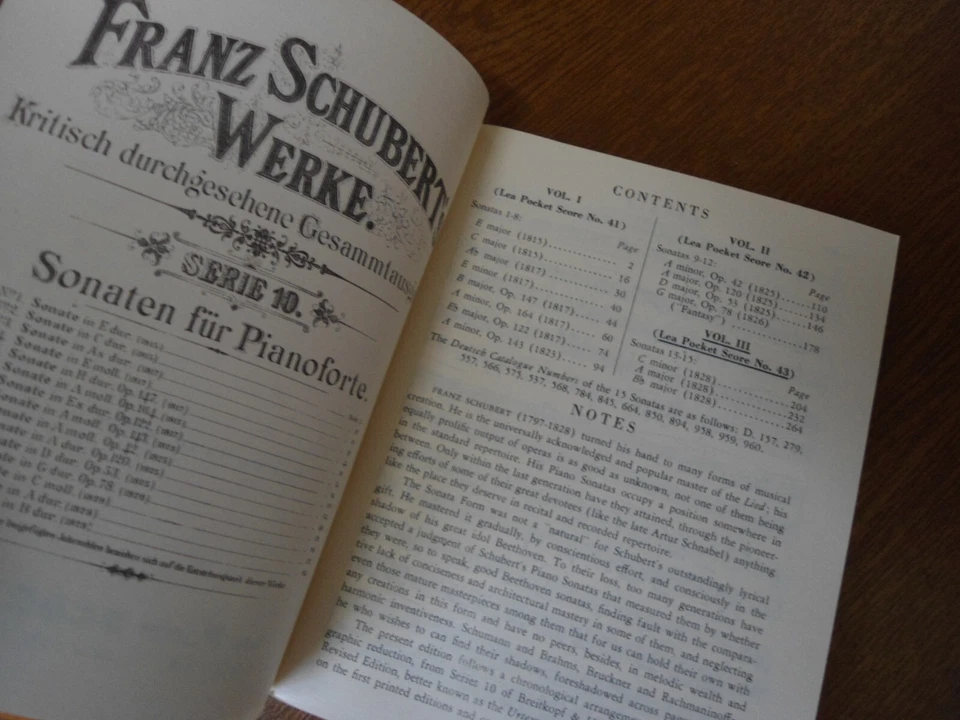 FRANZ SCHUBERT
WERKE.
Kritisch durchgesehene Gesammtausg
SERIE 10.
Sonaten für Pianoforte.
Sonate in E dur. (1815)
Sonate in C dur. (1815)
Sonate in As dur. (1817)
Sonate in E moll. (1817)
Sonate in H dur. Op. 147. (1817)
Sonate in A moll. Op. 164. (1817)
Sonate in Es dur. Op. 122. (1817)
Sonate in A moll. Op. 143. (1823)
in A moll. Op. 42. (1825)
in A dur. Op. 120. (1825)
in D dur. Op. 53. (1825)
in G dur. Op. 78. (1826)
in C moll. (1828)
in A dur. (1828)
in B dur. (1828)
beigefügten Jahreszahlen beziehen sich auf die Entstehungszeit dieser Werke.
CONTENTS
VOL. I
(Lea Pocket Score No. 41)
Sonatas 1-8: Page
E major (1815) 2
C major (1815) 16
A♭ major (1817) 30
E minor (1817) 40
B major, Op. 147 (1817) 44
A minor, Op. 164 (1817) 60
E♭ major, Op. 122 (1817) 74
A minor, Op. 143 (1823) 94
VOL. II
(Lea Pocket Score No. 42)
Sonatas 9-12: Page
A minor, Op. 42 (1825) 110
A major, Op. 120 (1825) 134
D major, Op. 53 (1825) 146
G major, Op. 78 (1826)
("Fantasy") 178
VOL. III
(Lea Pocket Score No. 43)
Sonatas 13-15: Page
C minor (1828) 204
A major (1828) 232
B♭ major (1828) 264
The Deutsch Catalogue Numbers of the 15 Sonatas are as follows: D. 157, 279,
557, 566, 575, 537, 568, 784, 845, 664, 850, 894, 958, 959, 960.
NOTES
FRANZ SCHUBERT (1797-1828) turned his hand to many forms of musical
creation. He is the universally acknowledged and popular master of the Lied; his
equally prolific output of operas is as good as unknown, not one of them being
in the standard repertoire. His Piano Sonatas occupy a position somewhere in
between. Only within the last generation have they attained, through the pioneer-
ing efforts of some of their great devotees (like the late Artur Schnabel) anything
like the place they deserve in recital and recorded repertoire.
The Sonata Form was not a "natural" for Schubert's outstandingly lyrical
gift. He mastered it gradually, by conscientious effort, and consciously in the
shadow of his great idol Beethoven. To their loss, too many generations have
accepted a judgment of Schubert's Piano Sonatas that measured them by whether
they were, so to speak, good Beethoven sonatas, finding fault with the compara-
tive lack of conciseness and architectural mastery in some of them, and neglecting
even those mature masterpieces among them that for us can hold their own with
any creations in this form and have no peers, besides, in melodic wealth and
harmonic inventiveness. Schumann and Brahms, Bruckner and Rachmaninoff—
he who wishes to can find their shadows, foreshadowed across
The present edition follows a chronological arrangement
graphic reduction, from Series 10 of Breitkopf &
Revised Edition, better known as the
on the first printed editions and